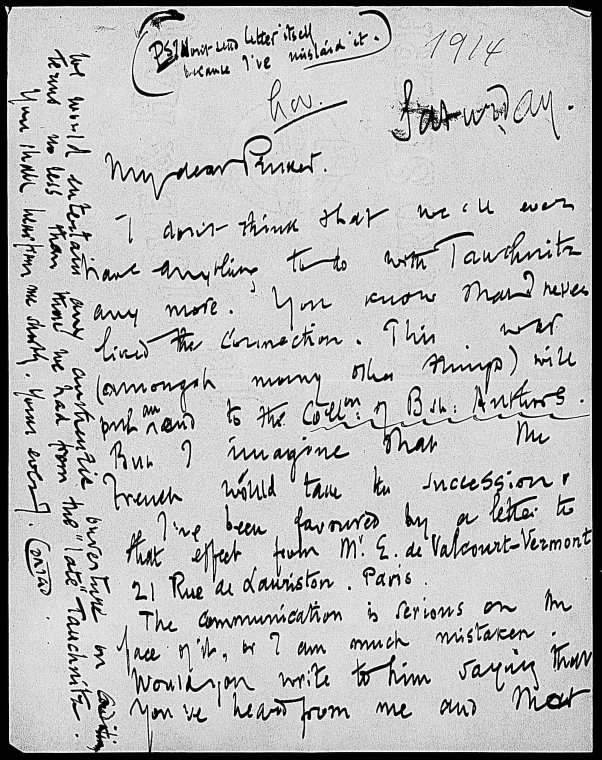 (PS I don't send letter itself
because I've mislaid it.)
1914
Nov.
Saturday.
My dear Pinker.
I don't think that we'll ever
have anything to do with Tauchnitz
any more. You know that I never
liked the connection. This war
(amongst many other things) will
put an end to the Collon: of Bsh: Authors.
But I imagine that the
French would take the succession.
I've been favoured by a letter to
that effect from Mr. E. de Valcourt-Vermont
21 Rue de Lauriston. Paris.
The communication is serious on the
face of it, or I am much mistaken.
Would you write to him saying that
you've heard from me and that
we would entertain any authentic overture on
terms no less than that we had from the "late" Tauchnitz.
You shall hear from me shortly. Yours ever J. Conrad.